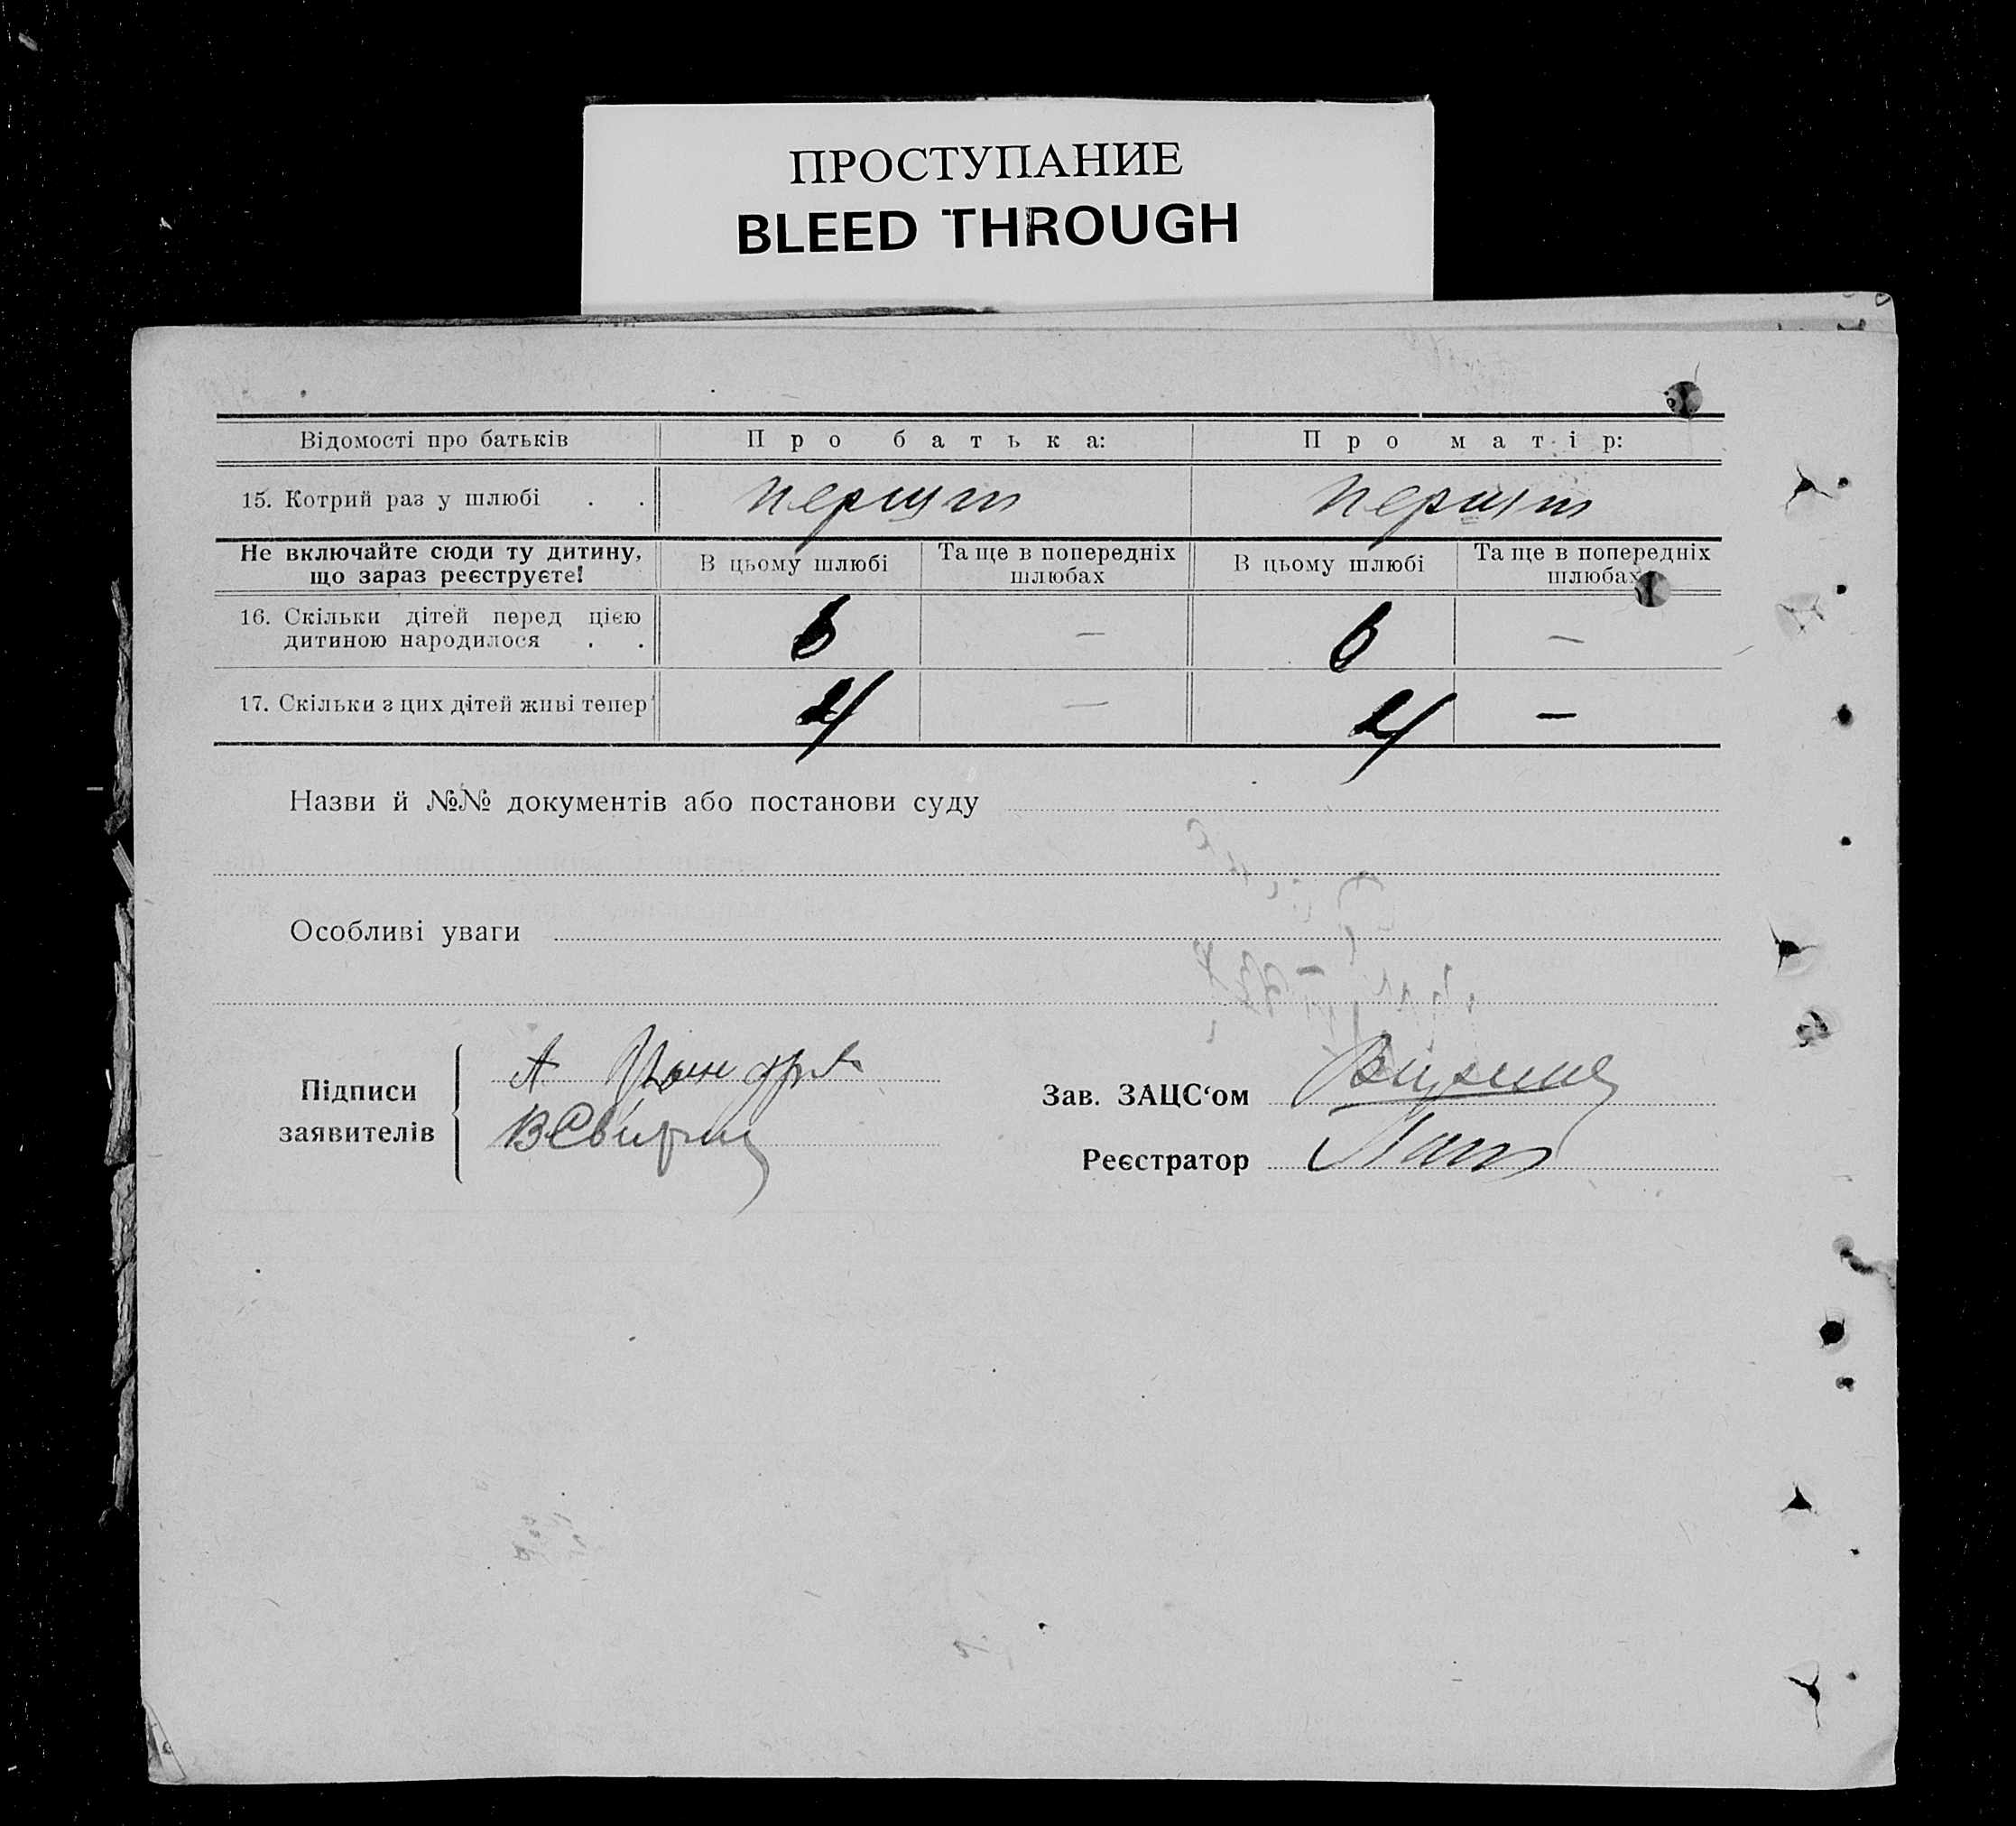 ПРОСТУПАНИЕ
BLEED THROUGH
Відомості про батьків Про батька: Про матір:
15. Котрий раз у шлюбі . . перший перший
Не включайте сюди ту дитину, що зараз реєструєте! В цьому шлюбі Та ще в попередніх шлюбах В цьому шлюбі Та ще в попередніх шлюбах
16. Скільки дітей перед цією
дитиною народилося . . 6 — 6 —
17. Скільки з цих дітей живі тепер 4 — 4 —
Назви й №№ документів або постанови суду
Особливі уваги
Підписи
заявителів
А
В
Зав. ЗАЦС‘ом
Реєстратор